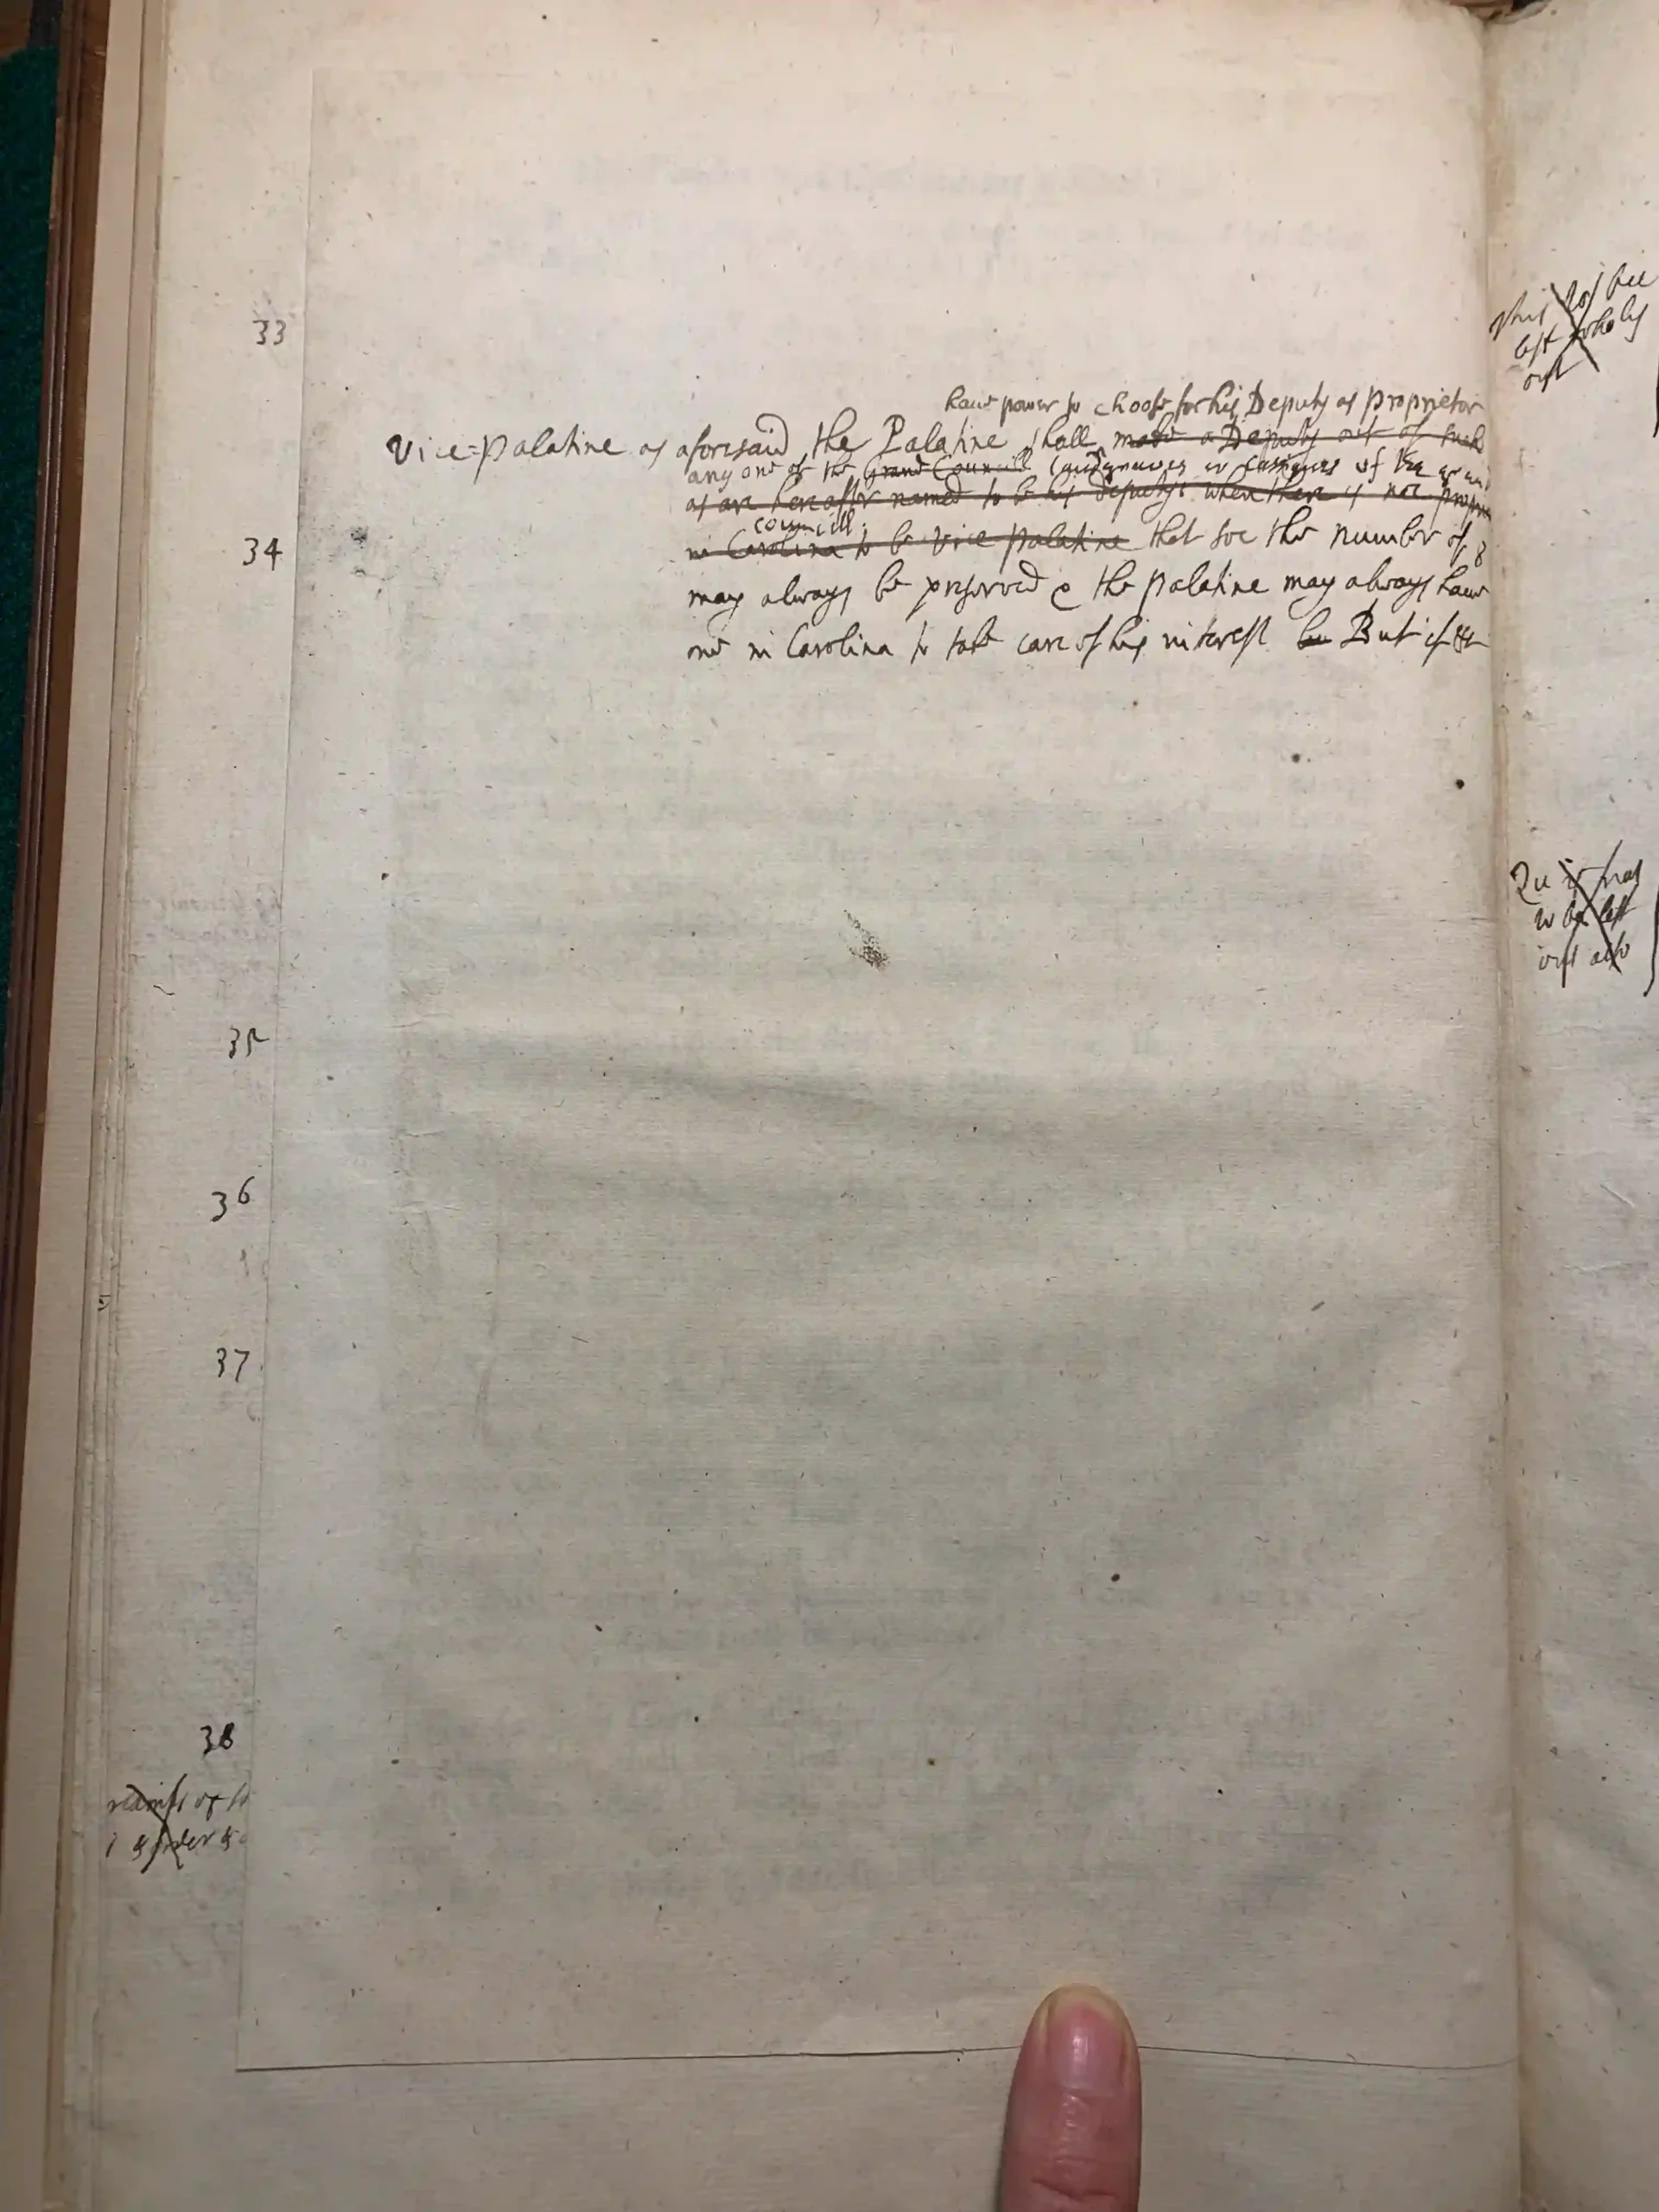 33
have power to choose for his Deputy as Proprietor
Vice=Palatine as aforesaid the Palatine shall make a Deputy out of such
any one of the Grand Councill Landgraves or Cassiques of the grand
as are hereafter named to be his deputys when there is noe propri
councill:
in Carolina to be Vice Palatine that soe the number of 8
34
may always be preserved & the Palatine may always have
one in Carolina to take care of his interest But if &c
35
36
37
38
of
& order &
This to bee
left wholy
out
Qu
to be left
out also